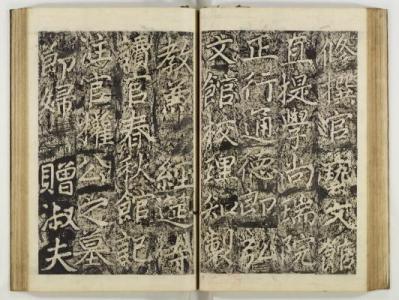 修撰官藝文館
直提學尚瑞院
正行通德郎弘
文館校理知製
教兼 經筵侍
讀官春秋館記
注官權公之墓
郎婦 贈淑夫